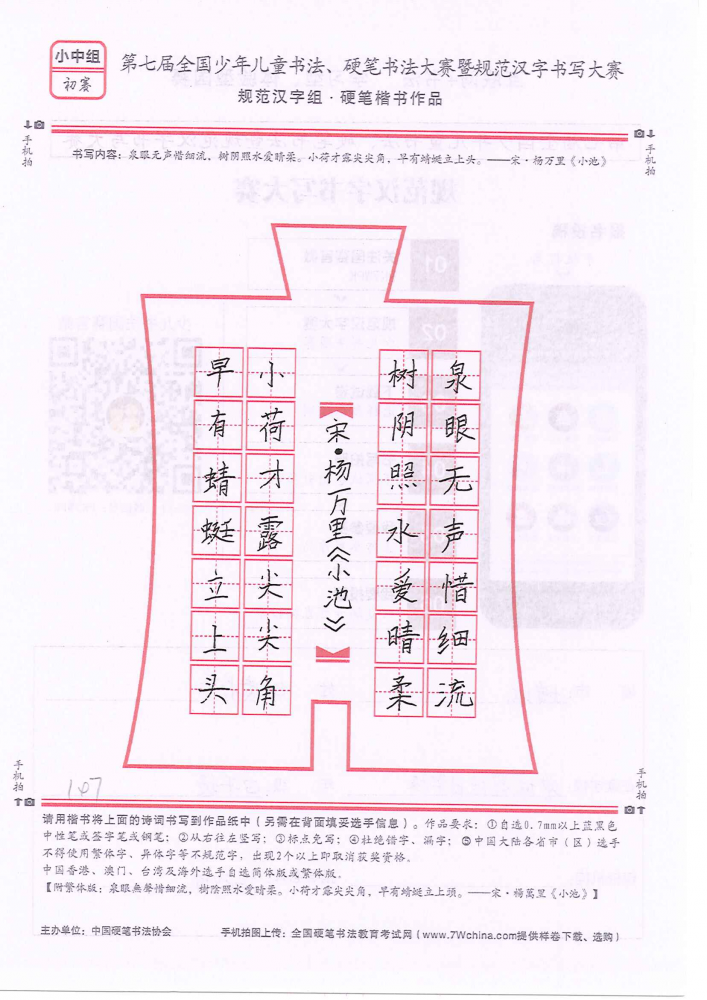 小中组
初赛
第七届全国少年儿童书法、硬笔书法大赛暨规范汉字书写大赛
规范汉字组·硬笔楷书作品
手机拍
手机拍
书写内容：泉眼无声惜细流，树阴照水爱晴柔。小荷才露尖尖角，早有蜻蜓立上头。——宋·杨万里《小池》
泉眼无声惜细流
树阴照水爱晴柔
宋·杨万里《小池》
小荷才露尖尖角
早有蜻蜓立上头
手机拍
手机拍
107
请用楷书将上面的诗词书写到作品纸中（另需在背面填妥选手信息）。作品要求：①自选0.7mm以上蓝黑色
中性笔或签字笔或钢笔；②从右往左竖写；③标点免写；④杜绝错字、漏字；⑤中国大陆各省市（区）选手
不得使用繁体字、异体字等不规范字，出现2个以上即取消获奖资格。
中国香港、澳门、台湾及海外选手自选简体版或繁体版。
【附繁体版：泉眼無聲惜细流，樹陰照水爱晴柔。小荷才露尖尖角，早有蜻蜓立上頭。——宋·楊萬里《小池》】
主办单位：中国硬笔书法协会
手机拍图上传：全国硬笔书法教育考试网（www.7Wchina.com提供样卷下载、选购）